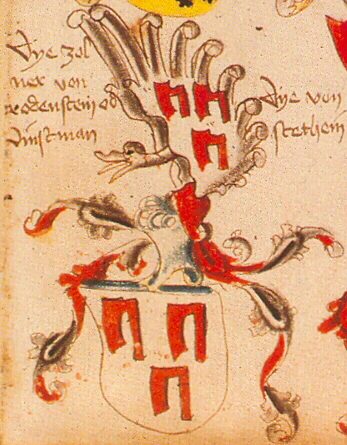 Dye zol
ner von
rodenstein od
Dinstman
Dye von
stethem